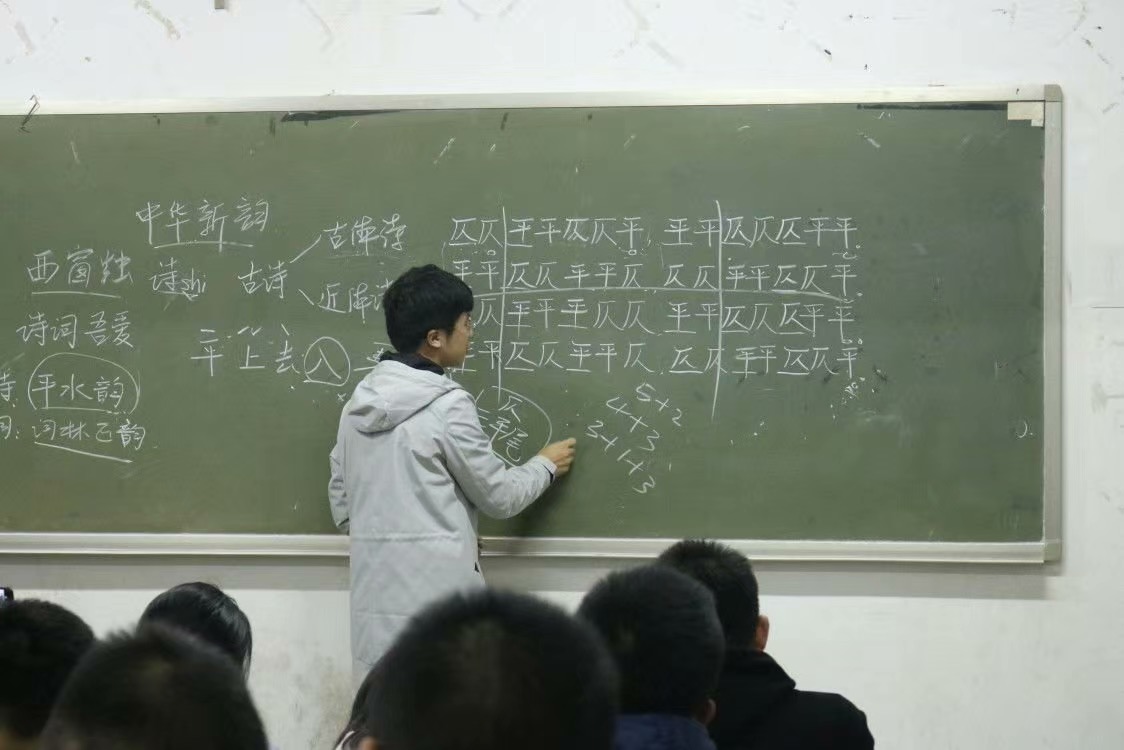 中华新韵
西窗烛 诗shi 古诗
古体诗
近体诗
诗词吾爱
平上去入
诗 平水韵
词:词林正韵
仄仄平平仄仄平,平平仄仄仄平平。
平平仄仄平平仄 仄仄平平仄仄平
仄平平平仄仄 平平仄仄仄平平。
平平仄仄平平仄 仄仄平平仄仄平
仄
尾
5×2
4×3
3×1×3